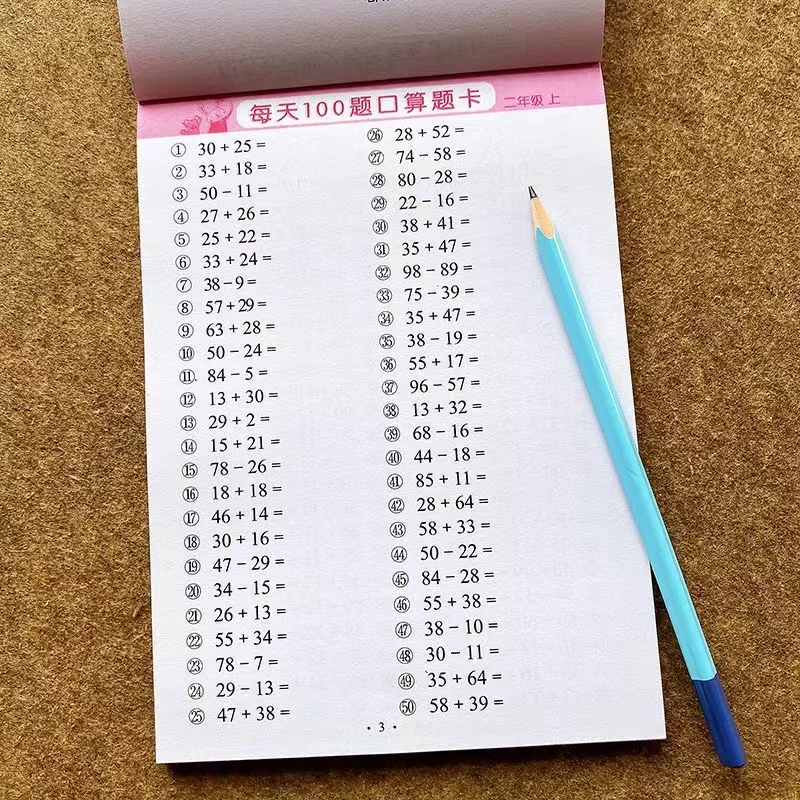 每天100题口算题卡 二年级 上
① 30 + 25 =
② 33 + 18 =
③ 50 − 11 =
④ 27 + 26 =
⑤ 25 + 22 =
⑥ 33 + 24 =
⑦ 38 − 9 =
⑧ 57 + 29 =
⑨ 63 + 28 =
⑩ 50 − 24 =
⑪ 84 − 5 =
⑫ 13 + 30 =
⑬ 29 + 2 =
⑭ 15 + 21 =
⑮ 78 − 26 =
⑯ 18 + 18 =
⑰ 46 + 14 =
⑱ 30 + 16 =
⑲ 47 − 29 =
⑳ 34 − 15 =
㉑ 26 + 13 =
㉒ 55 + 34 =
㉓ 78 − 7 =
㉔ 29 − 13 =
㉕ 47 + 38 =
㉖ 28 + 52 =
㉗ 74 − 58 =
㉘ 80 − 28 =
㉙ 22 − 16 =
㉚ 38 + 41 =
㉛ 35 + 47 =
㉜ 98 − 89 =
㉝ 75 − 39 =
㉞ 35 + 47 =
㉟ 38 − 19 =
㊱ 55 + 17 =
㊲ 96 − 57 =
㊳ 13 + 32 =
㊴ 68 − 16 =
㊵ 44 − 18 =
㊶ 85 + 11 =
㊷ 28 + 64 =
㊸ 58 + 33 =
㊹ 50 − 22 =
㊺ 84 − 28 =
㊻ 55 + 38 =
㊼ 38 − 10 =
㊽ 30 − 11 =
㊾ 35 + 64 =
㊿ 58 + 39 =
· 3 ·